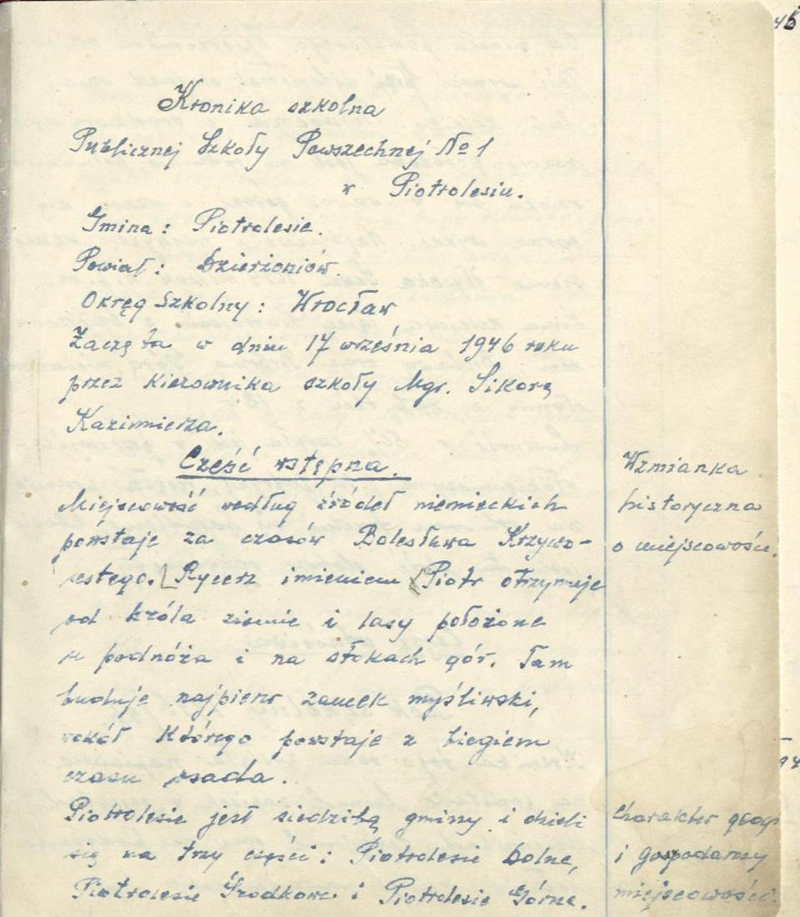 Kronika szkolna
Publicznej Szkoły Powszechnej No 1
w Piotrolesiu.
Gmina: Piotrolesie.
Powiat: Dzierżoniów.
Okręg Szkolny: Wrocław
Zaczęta w dniu 17 września 1946 roku
przez kierownika szkoły Mgr. Sikorę
Kazimierza.
Część wstępna.
Miejscowość według źródeł niemieckich
powstaje za czasów Bolesława Krzywo-
ustego. Rycerz imieniem Piotr otrzymuje
od króla ziemie i lasy położone
u podnóża i na stokach gór. Tam
buduje najpierw zamek myśliwski,
wokół którego powstaje z biegiem
czasu osada.
Piotrolesie jest siedzibą gminy i dzieli
się na trzy części: Piotrolesie Dolne,
Piotrolesie Środkowe i Piotrolesie Górne.
Wzmianka
historyczna
o miejscowości.
Charakter geogr
i gospodarczy
miejscowości.